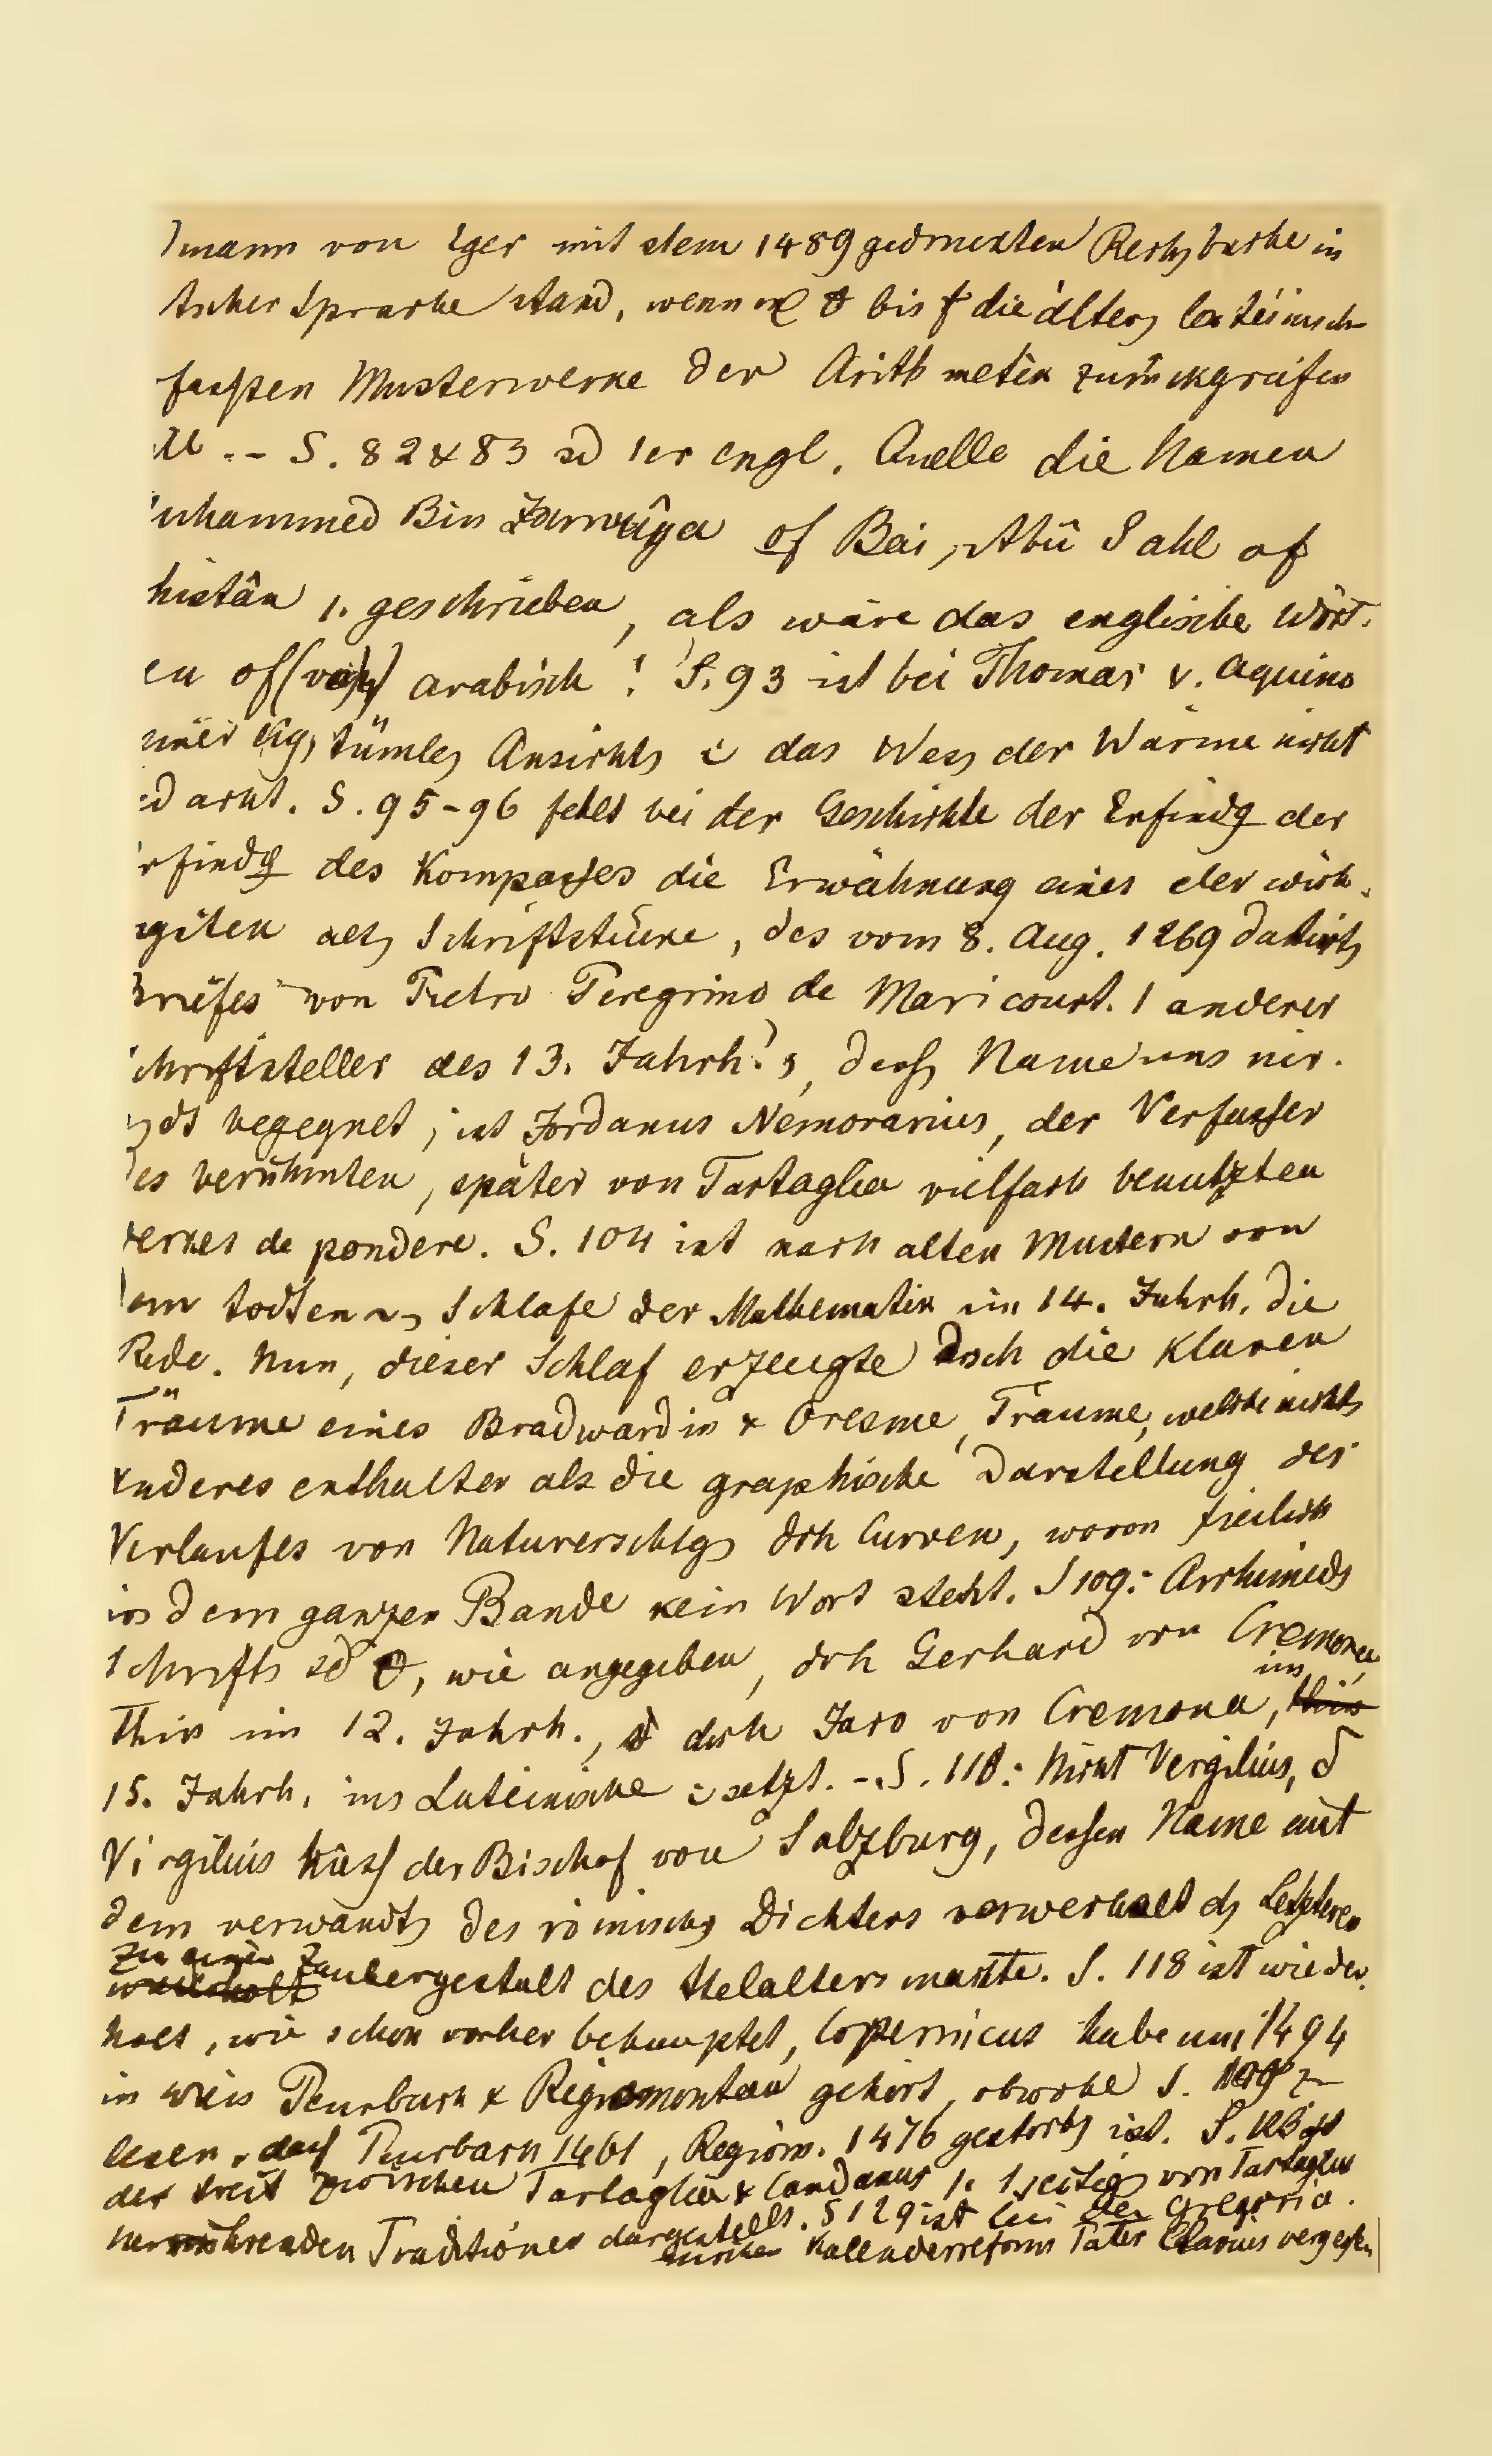 mann von Eger mit dem 1489 gedruckten Rech buche in
tscher Sprache stand, wenn bis die älter lateinisch
fassten Musterwerke der Arithmetik zurückgreifen
S. 82 & 83 sd engl. Quelle die Namen
uhammed Bin of Bai, Abû Sahl of
histân 1. geschrieben, als wäre das englische Wört.
en of (von) arabisch! S. 93 ist bei Thomas v. Aquino
tüml Ansicht das Wes der Wärme nicht
dacht. S. 95-96 fehlt bei der Geschichte der Erfindg der
rfindg des Kompasses die Erwähnung eines der wich.
gsten alt Schriftstücke, des vom 8. Aug. 1269 datirt
briefes von Pietro Peregrino de Maricourt. 1 anderer
chriftsteller des 13. Jahrh.s, dess Name uns nir.
ds begegnet, ist Jordanus Nemorarius, der Verfasser
des berühmten, später von Tartaglia vielfach benutzten
erkes de pondere. S. 104 ist nach alten Mustern von
em todten Schlafe der Mathematik im 14. Jahrh. die
Rede. Nun, dieser Schlaf erzeugte doch die klaren
Träume eines Bradwardin & Oresme, Träume, welche nichts
Anderes enthalten als die graphische Darstellung des
Verlaufes von Naturerschg dch Curven, wovon freilich
in dem ganzen Bande kein Wort steht. S 109: Archimeds
Schrift sd, wie angegeben, dch Gerhard von Cremona
im 12. Jahrh., dch Jaco von Cremona, im
15. Jahrh. ins Lateinische setzt. - S. 118: Nicht Vergilius, d
Virgilius hiess der Bischof von Salzburg, dessen Name mit
dem verwandt des römisch Dichters verwechselt d Letzteren
zu einer Zaubergestalt des telalters machte. S. 118 ist wieder.
holt, wie schon vorher behauptet, Copernicus habe um 1494
in Wien Peurbach & Regiomontan gehört, obwohl S. 109 zu
lesen, dass Peurbach 1461, Regiom. 1476 gestorb ist. S. ist
der Streit zwischen Tartaglia & Cardanus 1. 1seitig von Tartaglia
herrührenden Traditionen dargestellt. S 129 ist bei der Gregoria.
nischen Kalenderreform Pater Clavius vergessen